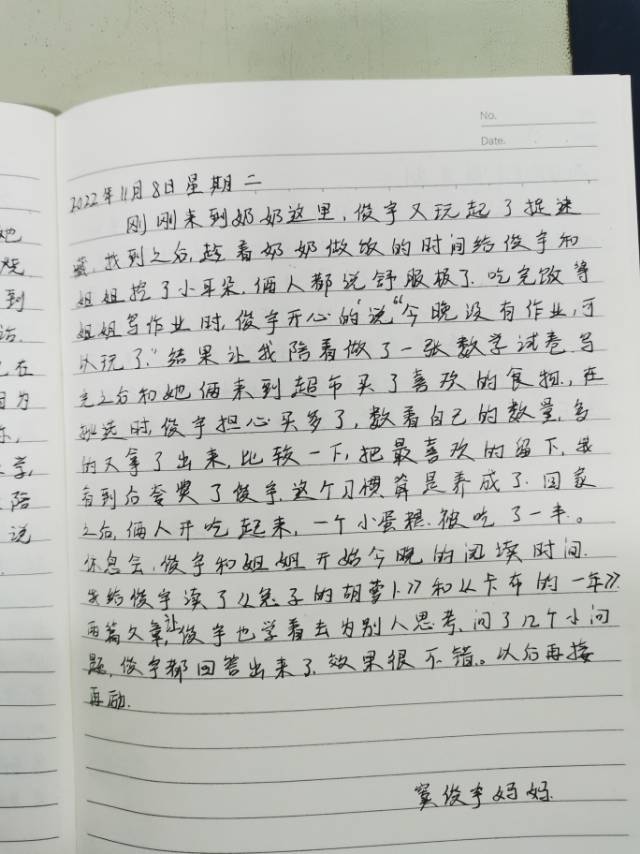 No.
Date.
2022年11月8日星期二
刚刚来到奶奶这里,俊宇又玩起了捉迷
藏,找到之后,趁着奶奶做饭的时间给俊宇和
姐姐挖了小耳朵,俩人都说舒服极了.吃完饭等
姐姐写作业时,俊宇开心的说"今晚没有作业,可
以玩了."结果让我陪着做了一张数学试卷写
完之后和她俩来到超市买了喜欢的食物,在
挑选时,俊宇担心买多了,数着自己的数量,多
的又拿了出来,比较一下,把最喜欢的留下,我
看到后夸奖了俊宇,这个习惯算是养成了.回家
之后,俩人开吃起来,一个小蛋糕被吃了一半。
休息会,俊宇和姐姐开始今晚的阅读时间.
我给俊宇读了《兔子的胡萝卜》和《卡布的一年》.
两篇文章,让俊宇也学着去为别人思考,问了几个小问
题,俊宇都回答出来了,效果很不错。以后再接
再励.
窦俊宇妈妈.
她
到
在
因为
学,
陪
说